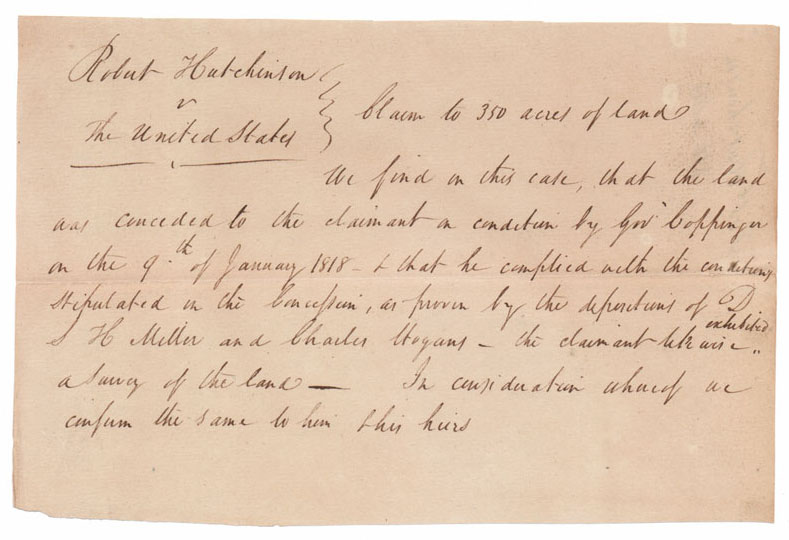 Robert Hutchinson
v
The United States } Claim to 350 acres of land
We find in this case, that the land
was conceded to the claimant on condition by Govr Coppinger
on the 9.th of January 1818 - & that he complied with the conditions
stipulated in the Concession, as proven by the depositions of D
S H Miller and Charles Hogans - the claimant likewise exhibited
a Survey of the land — In consideration whereof we
confirm the same to him & his heirs